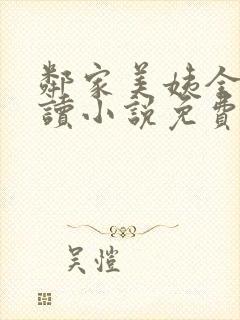 鄰家美姨全
讀小說免費
吳愷